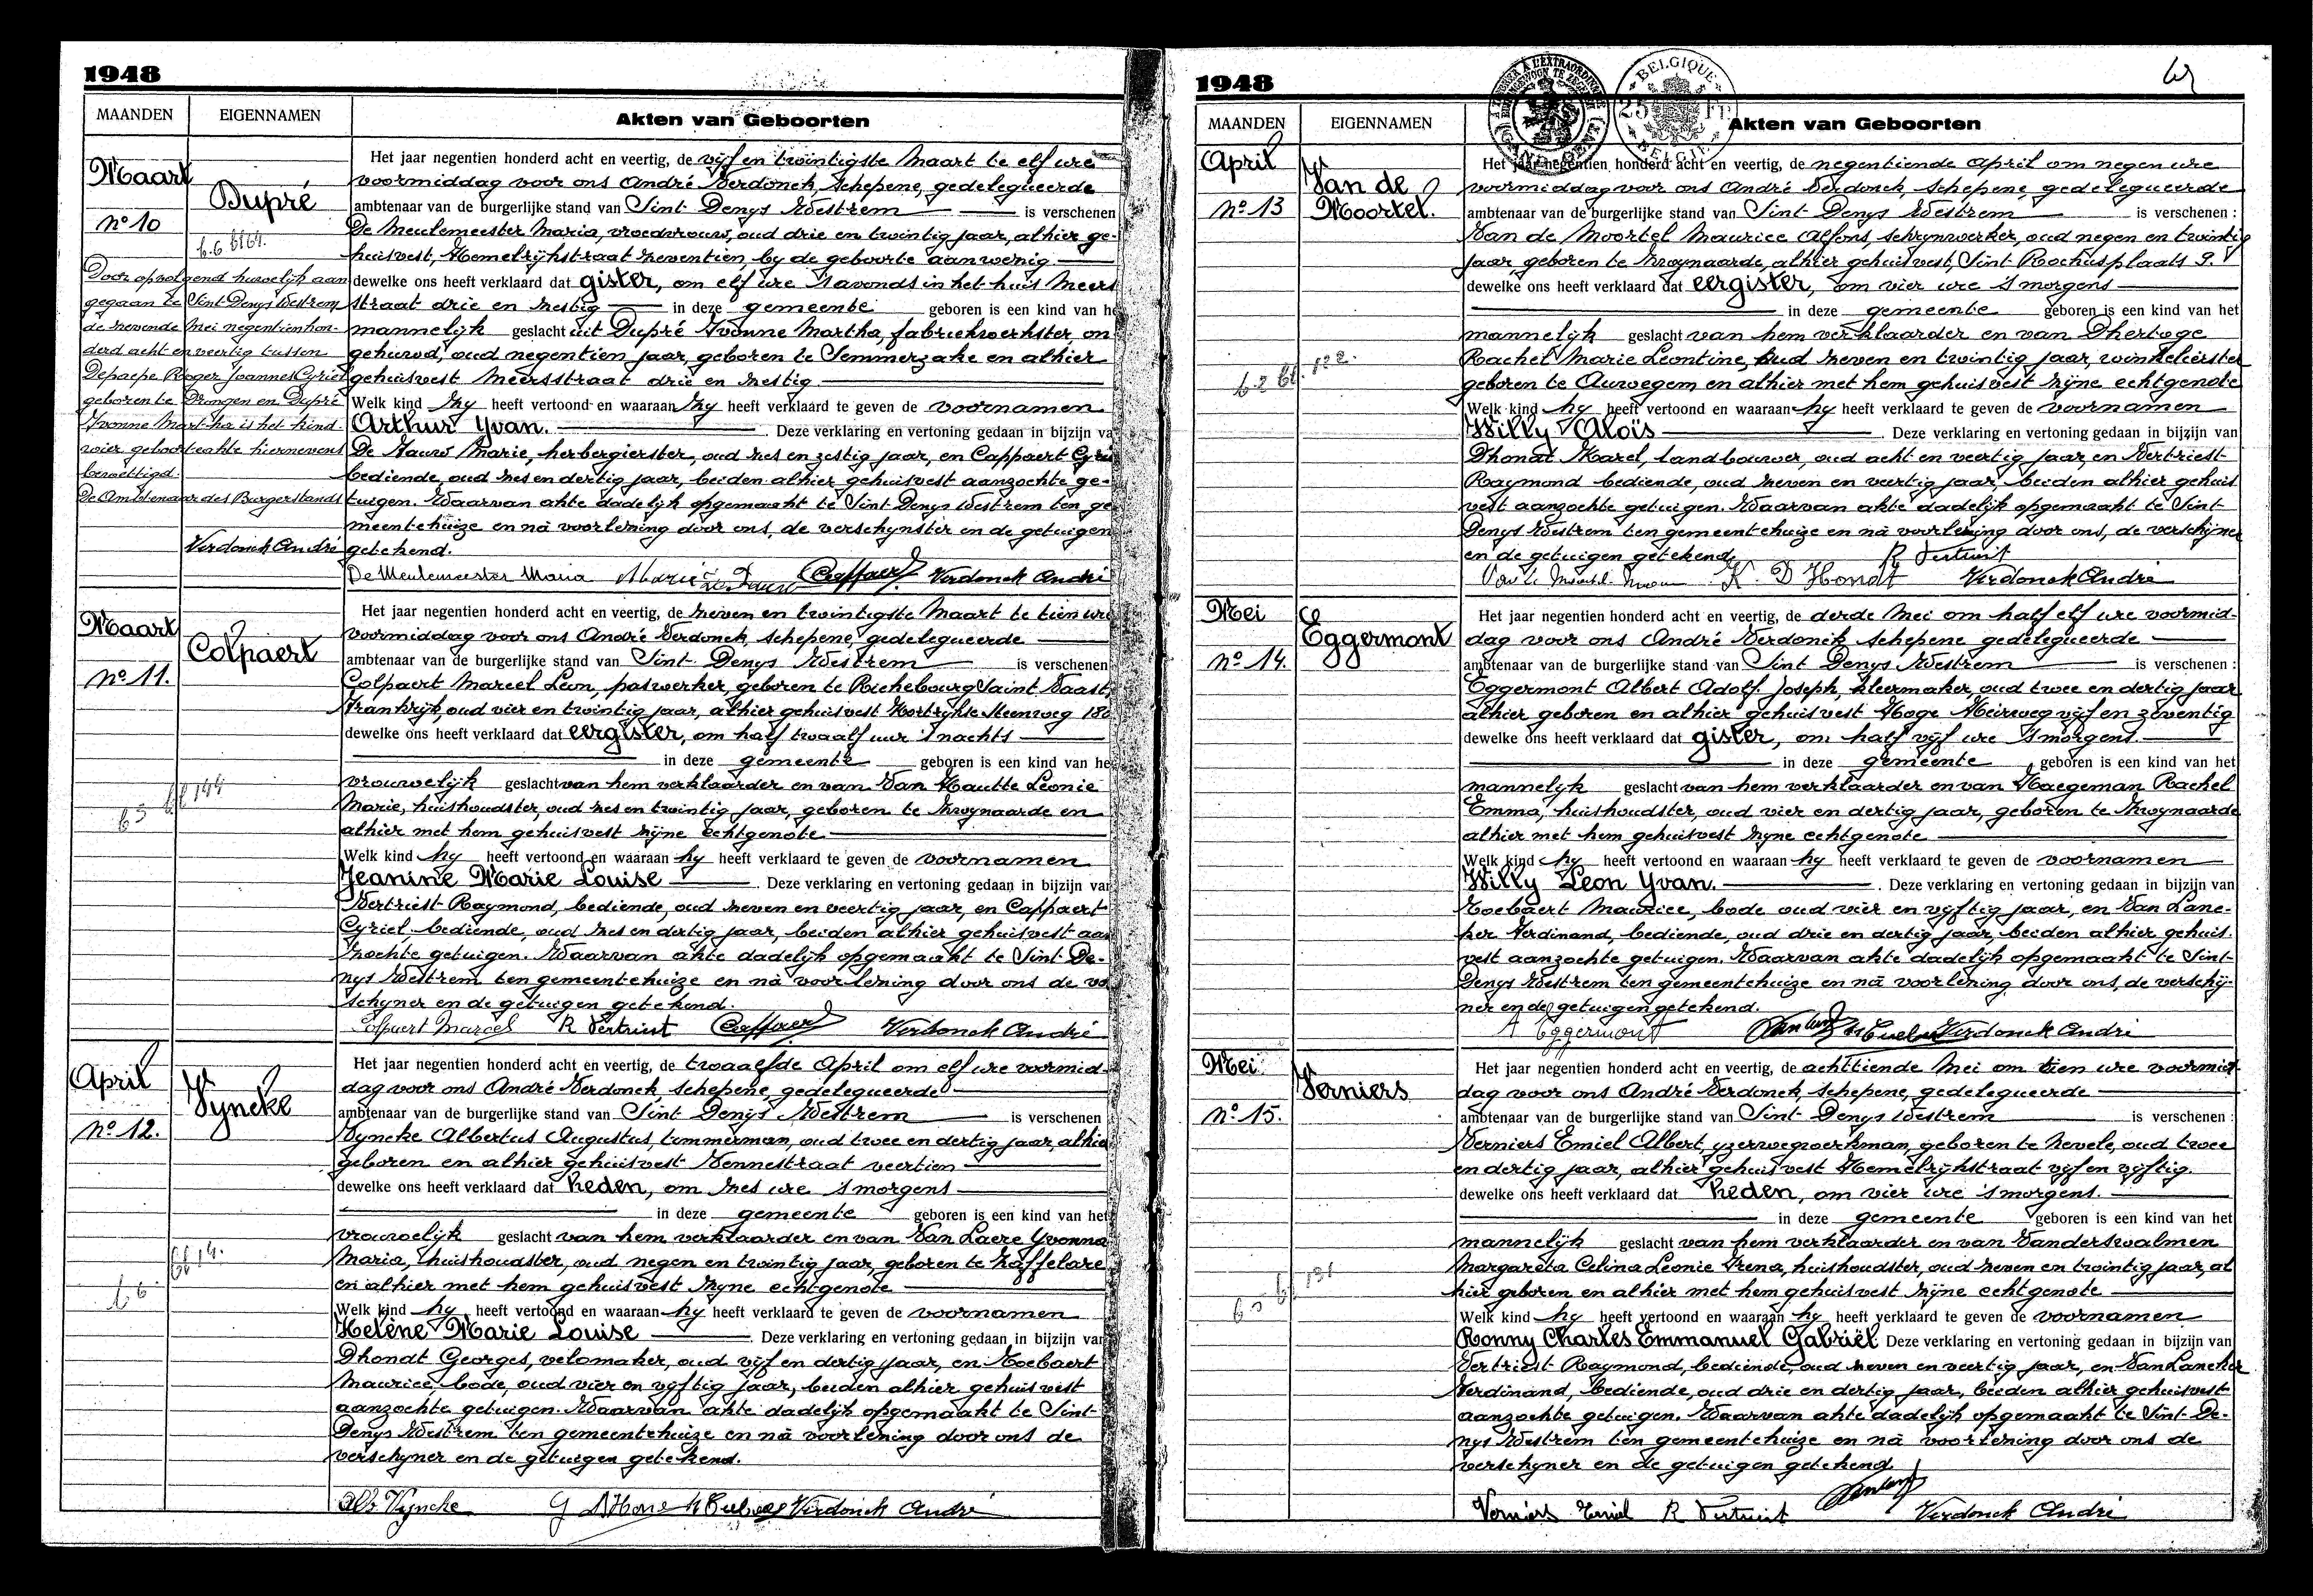 1948
MAANDEN
EIGENNAMEN
Akten van Geboorten
Maart
Dupré
No 10
Door opvolgend huwelijk aan
gegaan te Sint Denys Westrem
de zevende Mei negentienhon-
derd acht en veertig tussen
Depaepe Roger Joannes Cyriel
geboren te Drongen en Dupré
Yvonne Martha is het kind
wier geboorteakte hiernevens
bewettigd.
De Ambtenaar des Burgerstands
Verdonck André
Het jaar negentien honderd acht en veertig, de vijf en twintigste Maart te elf ure
voormiddag voor ons André Verdonck, Schepene, gedelegueerde
ambtenaar van de burgerlijke stand van Sint Denys Westrem is verschenen
De Meulemeester Maria, vroedvrouw, oud drie en twintig jaar, alhier ge-
huisvest, Hemelrijkstraat zeventien, by de geboorte aanwezig
dewelke ons heeft verklaard dat gister, om elf ure 's avonds in het huis Meers
straat drie en zestig in deze gemeente geboren is een kind van he
mannelijk geslacht uit Dupré Yvonne Martha, fabriekwerkster, on
gehuwd, oud negentien jaar, geboren te Semmerzake en alhier
gehuisvest Meersstraat drie en zestig
Welk kind zy heeft vertoond en waaraan zy heeft verklaard te geven de voornamen
Arthur Yvan. Deze verklaring en vertoning gedaan in bijzijn va
De Pauw Marie, herbergierster, oud zes en zestig jaar, en Cappaert Cyriel
bediende, oud zes en dertig jaar, beiden alhier gehuisvest aanzochte ge-
tuigen. Waarvan akte dadelijk opgemaakt te Sint Denys Westrem ten ge
meentehuize en nà voorlezing door ons, de verschynster en de getuigen
getekend.
De Meulemeester Maria Marie De Pauw Cappaert Verdonck André
Maart
Colpaert
No 11.
Het jaar negentien honderd acht en veertig, de zeven en twintigste Maart te tien ure
voormiddag voor ons André Verdonck, Schepene, gedelegueerde
ambtenaar van de burgerlijke stand van Sint Denys Westrem is verschenen
Colpaert Marcel Leon, paswerker, geboren te Richebourg Saint Vaast,
Frankrijk, oud vier en twintig jaar, alhier gehuisvest Kortrijkse Steenweg 180
dewelke ons heeft verklaard dat eergister, om half twaalf uur 's nachts
in deze gemeente geboren is een kind van he
vrouwelijk geslacht van hem verklaarder en van Van Hautte Leonie
Marie, huishoudster, oud zes en twintig jaar, geboren te Zwynaarde en
alhier met hem gehuisvest zyne echtgenote
Welk kind hy heeft vertoond en waaraan hy heeft verklaard te geven de voornamen
Jeanine Marie Louise Deze verklaring en vertoning gedaan in bijzijn van
Vertriest Raymond, bediende, oud zeven en veertig jaar, en Cappaert
Cyriel bediende, oud zes en dertig jaar, beiden alhier gehuisvest aan
zochte getuigen. Waarvan akte dadelijk opgemaakt te Sint De-
nys Westrem ten gemeentehuize en nà voorlezing door ons de ve
schyner en de getuigen getekend.
Colpaert Marcel R Vertriest Cappaert Verdonck André
April
Vyncke
No 12.
Het jaar negentien honderd acht en veertig, de twaalfde April om elf ure voormid-
dag voor ons André Verdonck, Schepene, gedelegueerde
ambtenaar van de burgerlijke stand van Sint Denys Westrem is verschenen
Vyncke Albertus Augustus, timmerman, oud twee en dertig jaar, alhier
geboren en alhier gehuisvest Vennestraat veertien
dewelke ons heeft verklaard dat heden, om zes ure 's morgens
in deze gemeente geboren is een kind van het
vrouwelijk geslacht van hem verklaarder en van Van Laere Yvonna
Maria, huishoudster, oud negen en twintig jaar, geboren te Zaffelare
en alhier met hem gehuisvest zyne echtgenote
Welk kind hy heeft vertoond en waaraan hy heeft verklaard te geven de voornamen
Helène Marie Louise Deze verklaring en vertoning gedaan in bijzijn van
Dhondt Georges, velomaker, oud vijf en dertig jaar, en Roebaert
Maurice, bode, oud vier en vyftig jaar, beiden alhier gehuisvest
aanzochte getuigen. Waarvan akte dadelijk opgemaakt te Sint
Denys Westrem ten gemeentehuize en nà voorlezing door ons de
verschyner en de getuigen getekend.
Alb Vyncke G D'Hondt Verdonck André
1948
MAANDEN
EIGENNAMEN
Akten van Geboorten
BELGIQUE
25 FR
BELGIE
April
Van de
Moortel.
No 13
Het jaar negentien honderd acht en veertig, de negentiende April om negen ure
voormiddag voor ons André Verdonck, Schepene, gedelegueerde
ambtenaar van de burgerlijke stand van Sint Denys Westrem is verschenen :
Van de Moortel Maurice Alfons, schrynwerker, oud negen en twintig
jaar, geboren te Zwynaarde, alhier gehuisvest, Sint Rochusplaats 9.
dewelke ons heeft verklaard dat eergister, om vier ure 's morgens
in deze gemeente geboren is een kind van het
mannelijk geslacht van hem verklaarder en van Dhertoge
Rachel Marie Leontine, oud zeven en twintig jaar, winkelierster
geboren te Auwegem en alhier met hem gehuisvest zyne echtgenote
Welk kind hy heeft vertoond en waaraan hy heeft verklaard te geven de voornamen
Willy Aloïs Deze verklaring en vertoning gedaan in bijzijn van
Dhondt Karel, landbouwer, oud acht en veertig jaar, en Vertriest
Raymond bediende, oud zeven en veertig jaar, beiden alhier gehuis
vest aanzochte getuigen. Waarvan akte dadelijk opgemaakt te Sint
Denys Westrem ten gemeentehuize en nà voorlezing door ons, de verschyner
en de getuigen getekend,
R Vertriest
K. D'Hondt Verdonck André
Mei
Eggermont
No 14.
Het jaar negentien honderd acht en veertig, de derde Mei om half elf ure voormid-
dag voor ons André Verdonck Schepene gedelegueerde
ambtenaar van de burgerlijke stand van Sint Denys Westrem is verschenen :
Eggermont Albert Adolf Joseph, kleermaker, oud twee en dertig jaar
alhier geboren en alhier gehuisvest Hoge Heirweg vijf en zeventig
dewelke ons heeft verklaard dat gister, om half vijf ure 's morgens.
in deze gemeente geboren is een kind van het
mannelijk geslacht van hem verklaarder en van Haegeman Rachel
Emma, huishoudster, oud vier en dertig jaar, geboren te Zwynaarde
alhier met hem gehuisvest zyne echtgenote
Welk kind hy heeft vertoond en waaraan hy heeft verklaard te geven de voornamen
Willy Leon Yvan. Deze verklaring en vertoning gedaan in bijzijn van
Roebaert Maurice, bode oud vier en vyftig jaar, en Van Lanc-
ker Ferdinand, bediende, oud drie en dertig jaar, beiden alhier gehuis.
vest aanzochte getuigen. Waarvan akte dadelijk opgemaakt te Sint-
Denys Westrem ten gemeentehuize en nà voorlezing door ons, de verschij-
ner en de getuigen getekend.
A Eggermont Verdonck André
Mei
Verniers
No 15.
Het jaar negentien honderd acht en veertig, de achttiende Mei om tien ure voormid-
dag voor ons André Verdonck, Schepene, gedelegueerde
ambtenaar van de burgerlijke stand van Sint Denys Westrem is verschenen :
Verniers Emiel Albert, yzerwegwerkman, geboren te Nevele, oud twee
en dertig jaar, alhier gehuisvest Hemelrijkstraat vijf en vijftig.
dewelke ons heeft verklaard dat heden, om vier ure 's morgens.
in deze gemeente geboren is een kind van het
mannelijk geslacht van hem verklaarder en van Vanderswalmen
Margareta Celina Leonie Irena, huishoudster, oud zeven en twintig jaar, al
hier geboren en alhier met hem gehuisvest zyne echtgenote
Welk kind hy heeft vertoond en waaraan hy heeft verklaard te geven de voornamen
Ronny Charles Emmanuel Gabriël Deze verklaring en vertoning gedaan in bijzijn van
Vertriest Raymond, bediende, oud zeven en veertig jaar, en Van Lancker
Ferdinand, bediende, oud drie en dertig jaar, beiden alhier gehuisvest
aanzochte getuigen. Waarvan akte dadelijk opgemaakt te Sint De-
nys Westrem ten gemeentehuize en nà voorlezing door ons de
verschyner en de getuigen getekend
Verniers Emiel R Vertriest Verdonck André